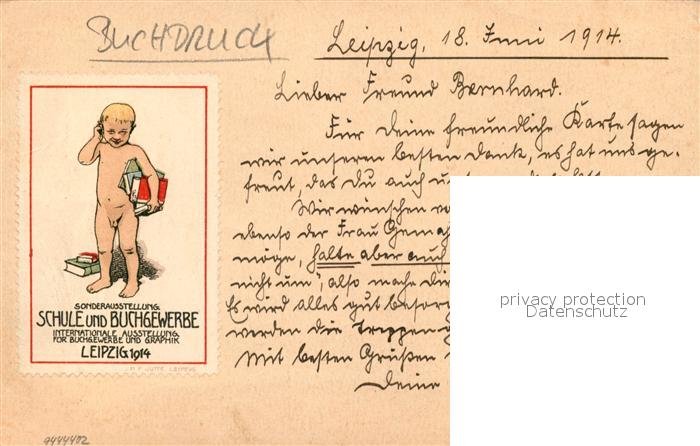 BUCHDRUCK
Leipzig, 18. Juni 1914.
Lieber Freund Bernhard.
Für deine freundliche Karte sagen
wir unseren besten Dank, es hat uns ge-
freut, das Du auch
Wir wünschen
ebenso der Frau Gemah
möge, halte aber auch
nicht um", also mache
Es wird alles gut besorg
werden die Treppen
Mit besten Grüßen
Deine
SONDERAUSSTELLUNG.
SCHULE UND BUCHGEWERBE
INTERNATIONALE AUSSTELLUNG
FÜR BUCHGEWERBE UND GRAPHIK
LEIPZIG 1914
LEIPZIG
privacy protection
Datenschutz
9444402